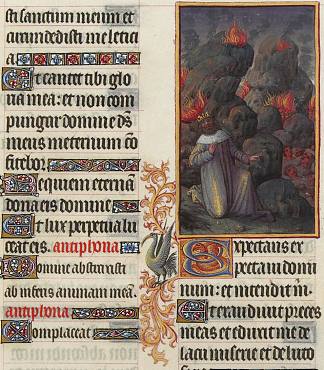 sti sanctum meum et
circundedisti me letici
a
Et cantet tibi glo
ria mea: et non com
pungar domine ds
meus in eternū cō
fitebor.
Requiem eternā
dona eis domine
Et lux perpetua lu
ceat eis. antiphona
Domine abstraxisti
ab inferis animam meā.
antiphona
Complaceat
Expectans ex
pectaui domi
num: et intendit m̄.
Et exaudiuit preces
meas et eduxit me de
lacu miserie et de luto